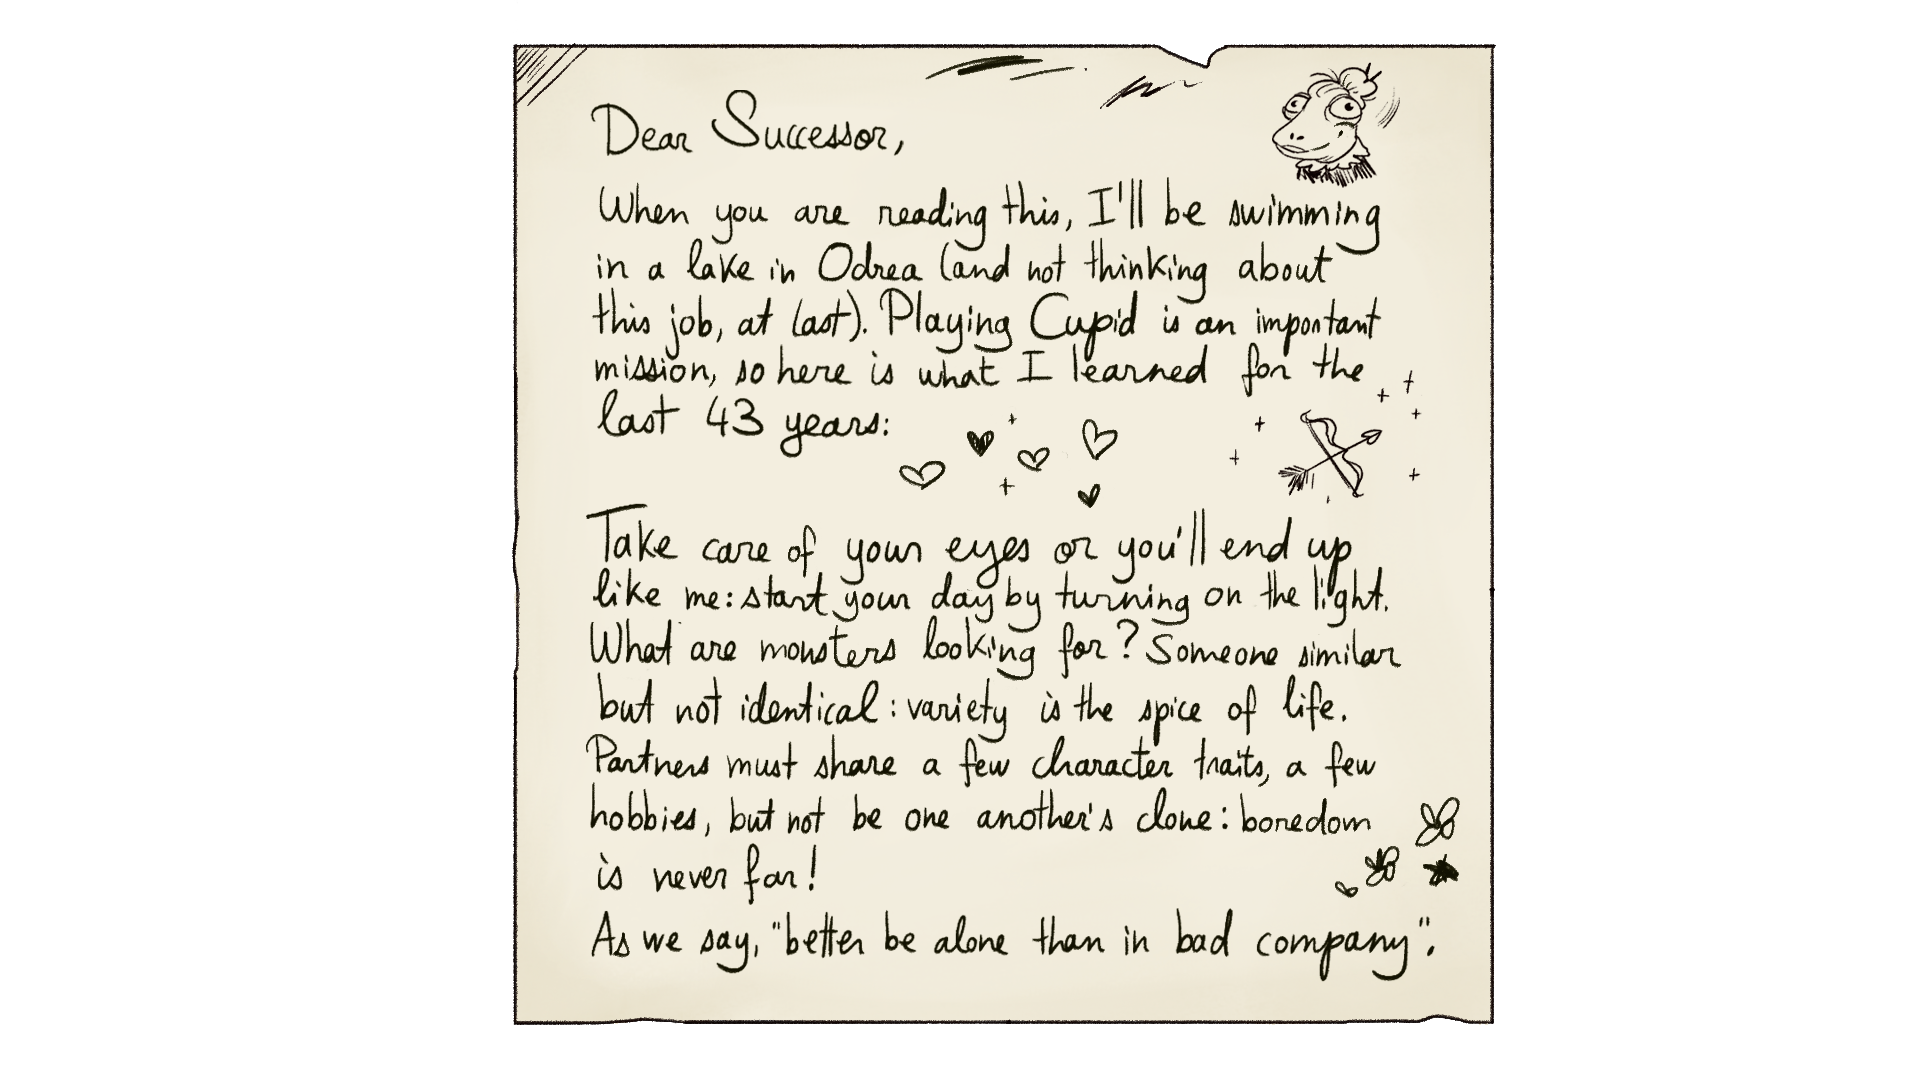 Dear Successor,
When you are reading this, I'll be swimming
in a lake in Odrea (and not thinking about
this job, at last). Playing Cupid is an important
mission, so here is what I learned for the
last 43 years:
Take care of your eyes or you'll end up
like me: start your day by turning on the light.
What are monsters looking for? Someone similar
but not identical: variety is the spice of life.
Partners must share a few character traits, a few
hobbies, but not be one another's clone: boredom
is never far!
As we say, "better be alone than in bad company".